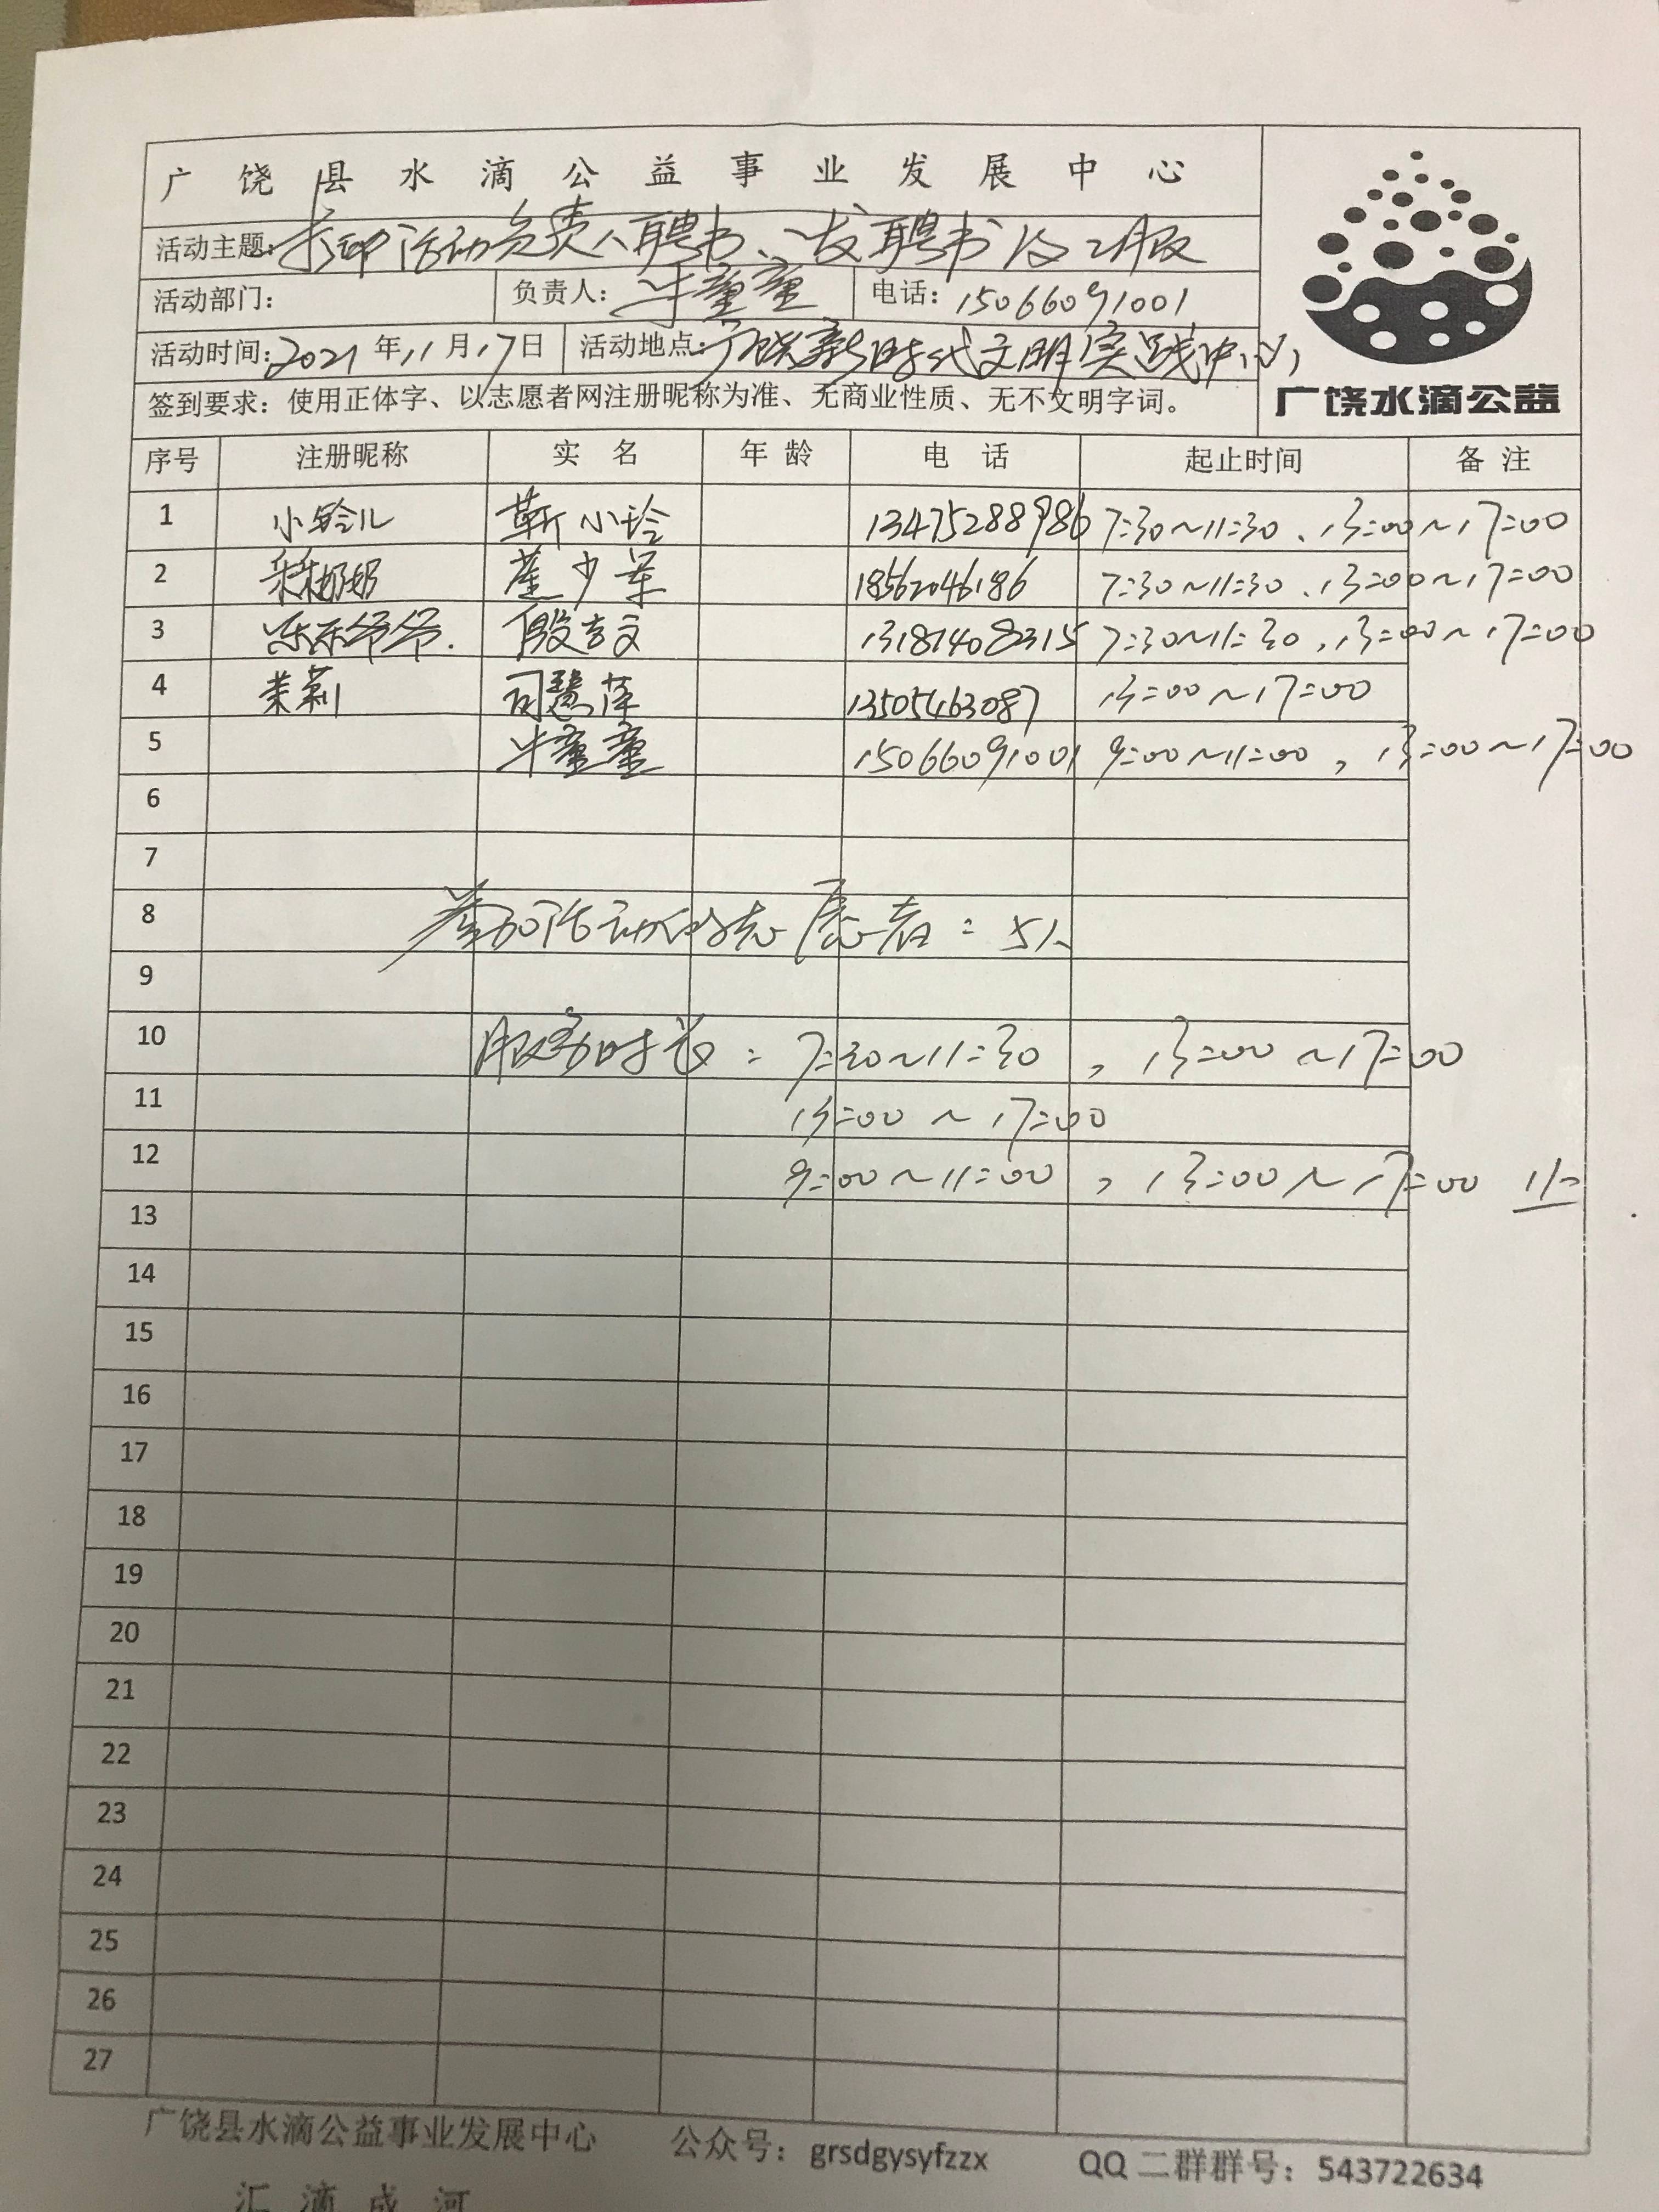 广饶县水滴公益事业发展中心
活动主题:卡印活动负责人聘书、发聘书及工服
活动部门: 负责人: 牛童童 电话: 15066091001
活动时间:2021年11月17日 活动地点:广饶新时代文明实践中心
签到要求: 使用正体字、以志愿者网注册昵称为准、无商业性质、无不文明字词。
广饶水滴公益
序号 注册昵称 实名 年龄 电话 起止时间 备注
1 小铃儿 靳小玲 13475288986 7:30~11:30、13:00~17:00
2 奶奶 少军 18562046186 7:30~11:30、13:00~17:00
3 乐乐爷爷. 殷方文 13181408315 7:30~11:30,13:00~17:00
4 茉莉 司慧萍 13505463087 13:00~17:00
5 牛童童 15066091001 9:00~11:00,13:00~17:00
6
7
8 参加活动的志愿者:5人
9
10 服务时长:7:30~11:30,13:00~17:00
11 13:00~17:00
12 9:00~11:00,13:00~17:00
13
14
15
16
17
18
19
20
21
22
23
24
25
26
27
广饶县水滴公益事业发展中心 公众号: grsdgysyfzzx QQ二群群号: 543722634
汇滴成河